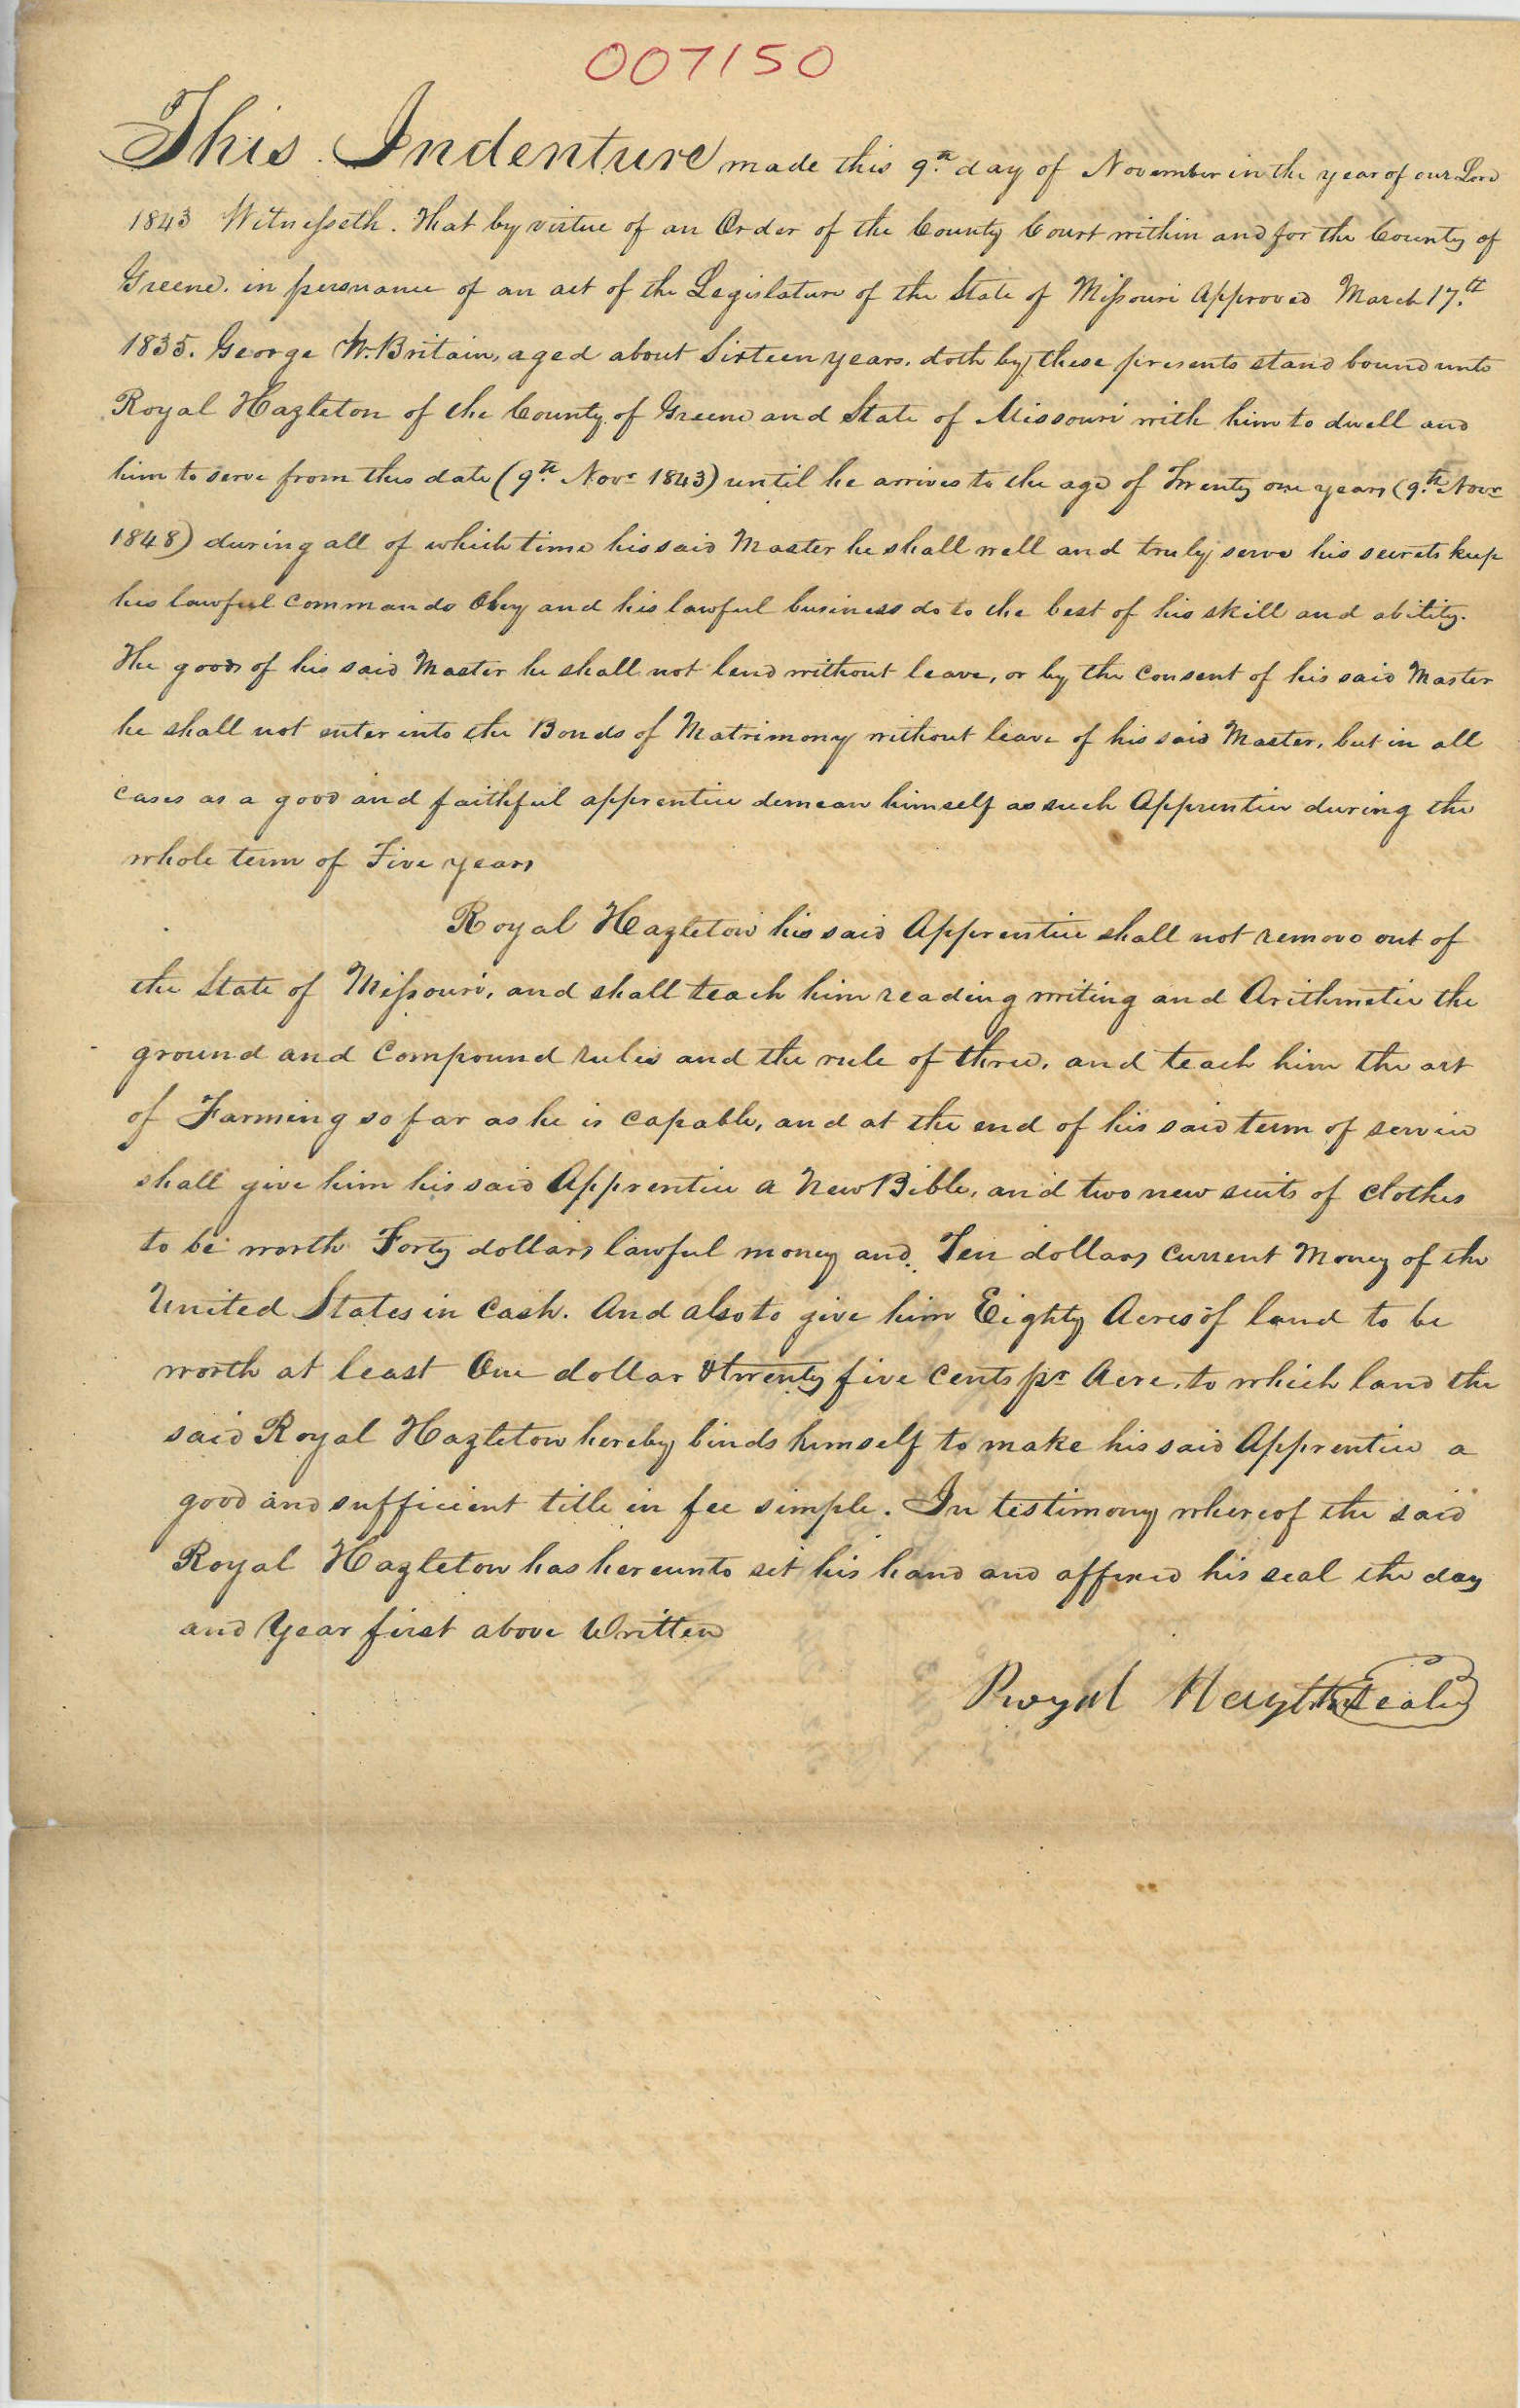 007150
This Indenture made this 9.th day of November in the year of our Lord
1843 Witnesseth. That by virtue of an Order of the County Court within and for the County of
Greene. in persuance of an act of the Legislature of the State of Missouri Approved March 17.th
1835. George W. Britain, aged about Sixteen years. doth by these presents stand bound unto
Royal Hazleton of the County of Greene and State of Missouri with him to dwell and
him to serve from this date (9.th Novr 1843) until he arrives to the age of Twenty one years (9.th Novr
1848) during all of which time his said Master he shall well and truly serve his secrets keep
his lawful commands Obey and his lawful business do to the best of his skill and ability.
The goods of his said Master he shall not lend without leave, or by the consent of his said Master
he shall not enter into the Bonds of Matrimony without leave of his said Master, but in all
cases as a good and faithful apprentice demean himself as such Apprentice during the
whole term of Five years
Royal Hazleton his said Apprentice shall not remove out of
the State of Missouri, and shall teach him reading writing and Arithmetic the
ground and compound rules and the rule of three, and teach him the art
of Farming so far as he is capable, and at the end of his said term of service
shall give him his said Apprentice a New Bible, and two new suits of clothes
to be worth Forty dollars lawful money and Ten dollars Current Money of the
United States in Cash. And also to give him Eighty Acres of land to be
worth at least One dollar & twenty five Cents pr Acre, to which land the
said Royal Hazleton hereby binds himself to make his said Apprentice a
good and sufficient title in fee simple. In testimony whereof the said
Royal Hazleton has hereunto set his hand and affixed his seal the day
and Year first above Written
Royal Hazelton Seal